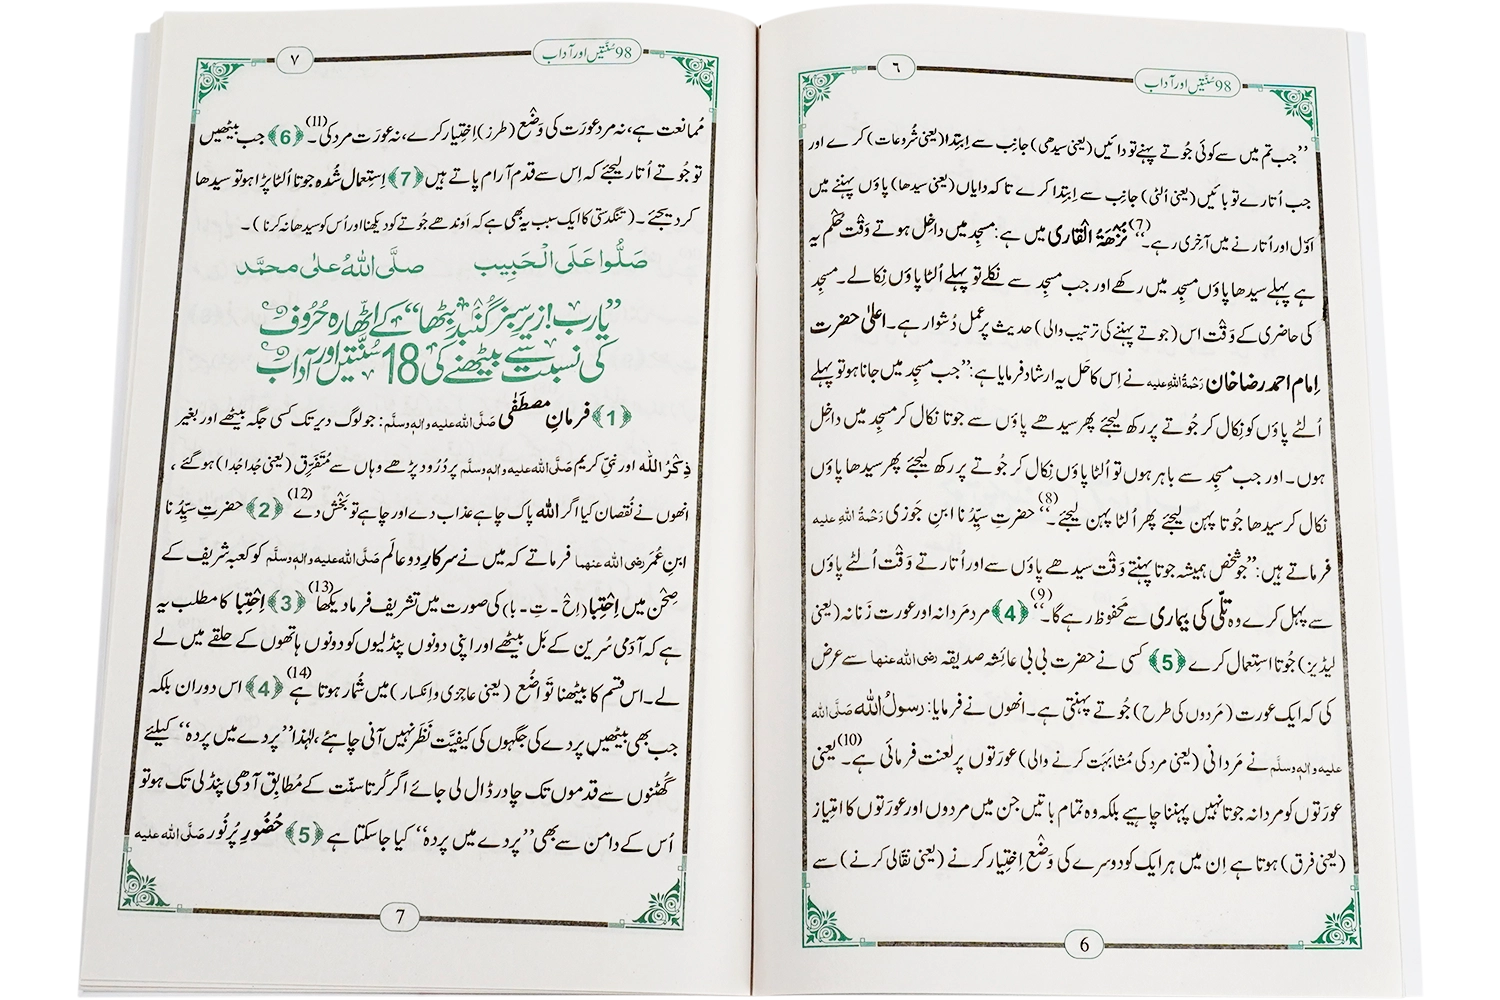 98 سُنّتیں اور آداب
٦
’’جب تم میں سے کوئی جُوتے پہنے تو دائیں (یعنی سیدھی) جانِب سے اِبتِدا (یعنی شُروعات) کرے اور
جب اُتارے تو بائیں (یعنی اُلٹی) جانِب سے اِبتِدا کرے تا کہ دایاں (یعنی سیدھا) پاؤں پہننے میں
اَوّل اور اُتارنے میں آخِری رہے۔‘‘(7) نُزْھَۃُ الْقَاری میں ہے: مسجِد میں داخِل ہوتے وَقْت حُکْم یہ
ہے پہلے سیدھا پاؤں مسجِد میں رکھے اور جب مسجِد سے نکلے تو پہلے اُلٹا پاؤں نِکالے۔ مسجِد
کی حاضری کے وَقْت اس (جوتے پہننے کی ترتیب والی) حدیث پر عمل دُشوار ہے۔ اعلیٰ حضرت
اِمام احمد رضا خان رَحْمۃُ اللہِ علیہ نے اِس کا حَل یہ ارشاد فرمایا ہے: ’’جب مسجِد میں جانا ہو تو پہلے
اُلٹے پاؤں کو نِکال کر جُوتے پر رکھ لیجئے پھر سیدھے پاؤں سے جُوتا نکال کر مسجِد میں داخِل
ہوں۔ اور جب مسجِد سے باہر ہوں تو اُلٹا پاؤں نِکال کر جُوتے پر رکھ لیجئے پھر سیدھا پاؤں
نکال کر سیدھا جُوتا پہن لیجئے پھر اُلٹا پہن لیجئے۔‘‘(8) حضرت سیِّدُنا ابنِ جَوزی رَحْمۃُ اللہِ علیہ
فرماتے ہیں: ’’جو شَخْص ہمیشہ جوتا پہنتے وَقْت سیدھے پاؤں سے اور اُتارتے وَقْت اُلٹے پاؤں
سے پہل کرے وہ تِلّی کی بیماری سے مَحفوظ رہے گا۔‘‘(9) ﴿4﴾ مرد مَردانہ اور عورت زَنانہ (یعنی
لیڈیز) جُوتا استعمال کرے ﴿5﴾ کسی نے حضرت بی بی عائِشہ صدیقہ رضی اللہ عنہا سے عرض
کی کہ ایک عورت (مَردوں کی طرح) جُوتے پہنتی ہے۔ انھوں نے فرمایا: رسولُ اللہ صَلَّی اللہ
علیہ واٰلہٖ وسلَّم نے مَردانی (یعنی مرد کی مُشابَہَت کرنے والی) عورَتوں پر لعنت فرمائی ہے۔(10) یعنی
عورَتوں کو مردانہ جُوتا نہیں پہننا چاہیے بلکہ وہ تمام باتیں جن میں مردوں اور عورَتوں کا اِمتِیاز
(یعنی فرق) ہوتا ہے اِن میں ہر ایک کو دوسرے کی وَضْع اِختِیار کرنے (یعنی نقالی کرنے) سے
6
98 سُنّتیں اور آداب
٧
مُمانَعت ہے، نہ مرد عورَت کی وَضْع (طرز) اِختِیار کرے، نہ عورَت مرد کی۔(11) ﴿6﴾ جب بیٹھیں
تو جُوتے اُتار لیجئے کہ اِس سے قدم آرام پاتے ہیں ﴿7﴾ اِستِعمال شُدہ جوتا اُلٹا پڑا ہو تو سیدھا
کر دیجئے۔ (تنگدستی کا ایک سبب یہ بھی ہے کہ اَوندھے جُوتے کو دیکھنا اور اُس کو سیدھا نہ کرنا)۔
صَلُّوا عَلَی الْحَبِیب صلَّی اللہُ علٰی محمَّد
’’یا رب! زیرِ سبز گُنْبَد بِٹھا‘‘ کے اٹھارہ حُرُوف
کی نسبت سے بیٹھنے کی 18 سُنّتیں اور آداب
﴿1﴾ فرمانِ مصطَفٰی صَلَّی اللہ علیہ واٰلہٖ وسلَّم: جو لوگ دیر تک کسی جگہ بیٹھے اور بغیر
ذِکْرُ اللہ اور نبیِّ کریم صَلَّی اللہ علیہ واٰلہٖ وسلَّم پر دُرُود پڑھے وہاں سے مُتَفَرِّق (یعنی جُدا جُدا) ہو گئے،
انھوں نے نُقصان کیا اگر اللہ پاک چاہے عذاب دے اور چاہے تو بَخْش دے(12) ﴿2﴾ حضرتِ سیِّدُنا
ابنِ عُمَر رضی اللہ عنھما فرماتے کہ میں نے سرکارِ دو عالَم صَلَّی اللہ علیہ واٰلہٖ وسلَّم کو کعبہ شریف کے
صِحْن میں اِحْتِبا (اِحْ ۔ تِ ۔ با) کی صورت میں تشریف فرما دیکھا(13) ﴿3﴾ اِحْتِبا کا مطلب یہ
ہے کہ آدَمی سُرین کے بَل بیٹھے اور اپنی دونوں پنڈلیوں کو دونوں ہاتھوں کے حلقے میں لے
لے۔ اس قسم کا بیٹھنا تَواضُع (یعنی عاجِزی و اِنکسار) میں شُمار ہوتا ہے(14) ﴿4﴾ اس دوران بلکہ
جب بھی بیٹھیں پردے کی جگہوں کی کیفِیَّت نَظَر نہیں آنی چاہئے، لہٰذا ’’پردے میں پردہ‘‘ کیلئے
گُھٹنوں سے قدموں تک چادر ڈال لی جائے اگر کُرتا سنّت کے مُطابِق آدھی پنڈلی تک ہو تو
اُس کے دامن سے بھی ’’پردے میں پردہ‘‘ کیا جا سکتا ہے ﴿5﴾ حُضُورِ پُرنُور صَلَّی اللہ علیہ
7